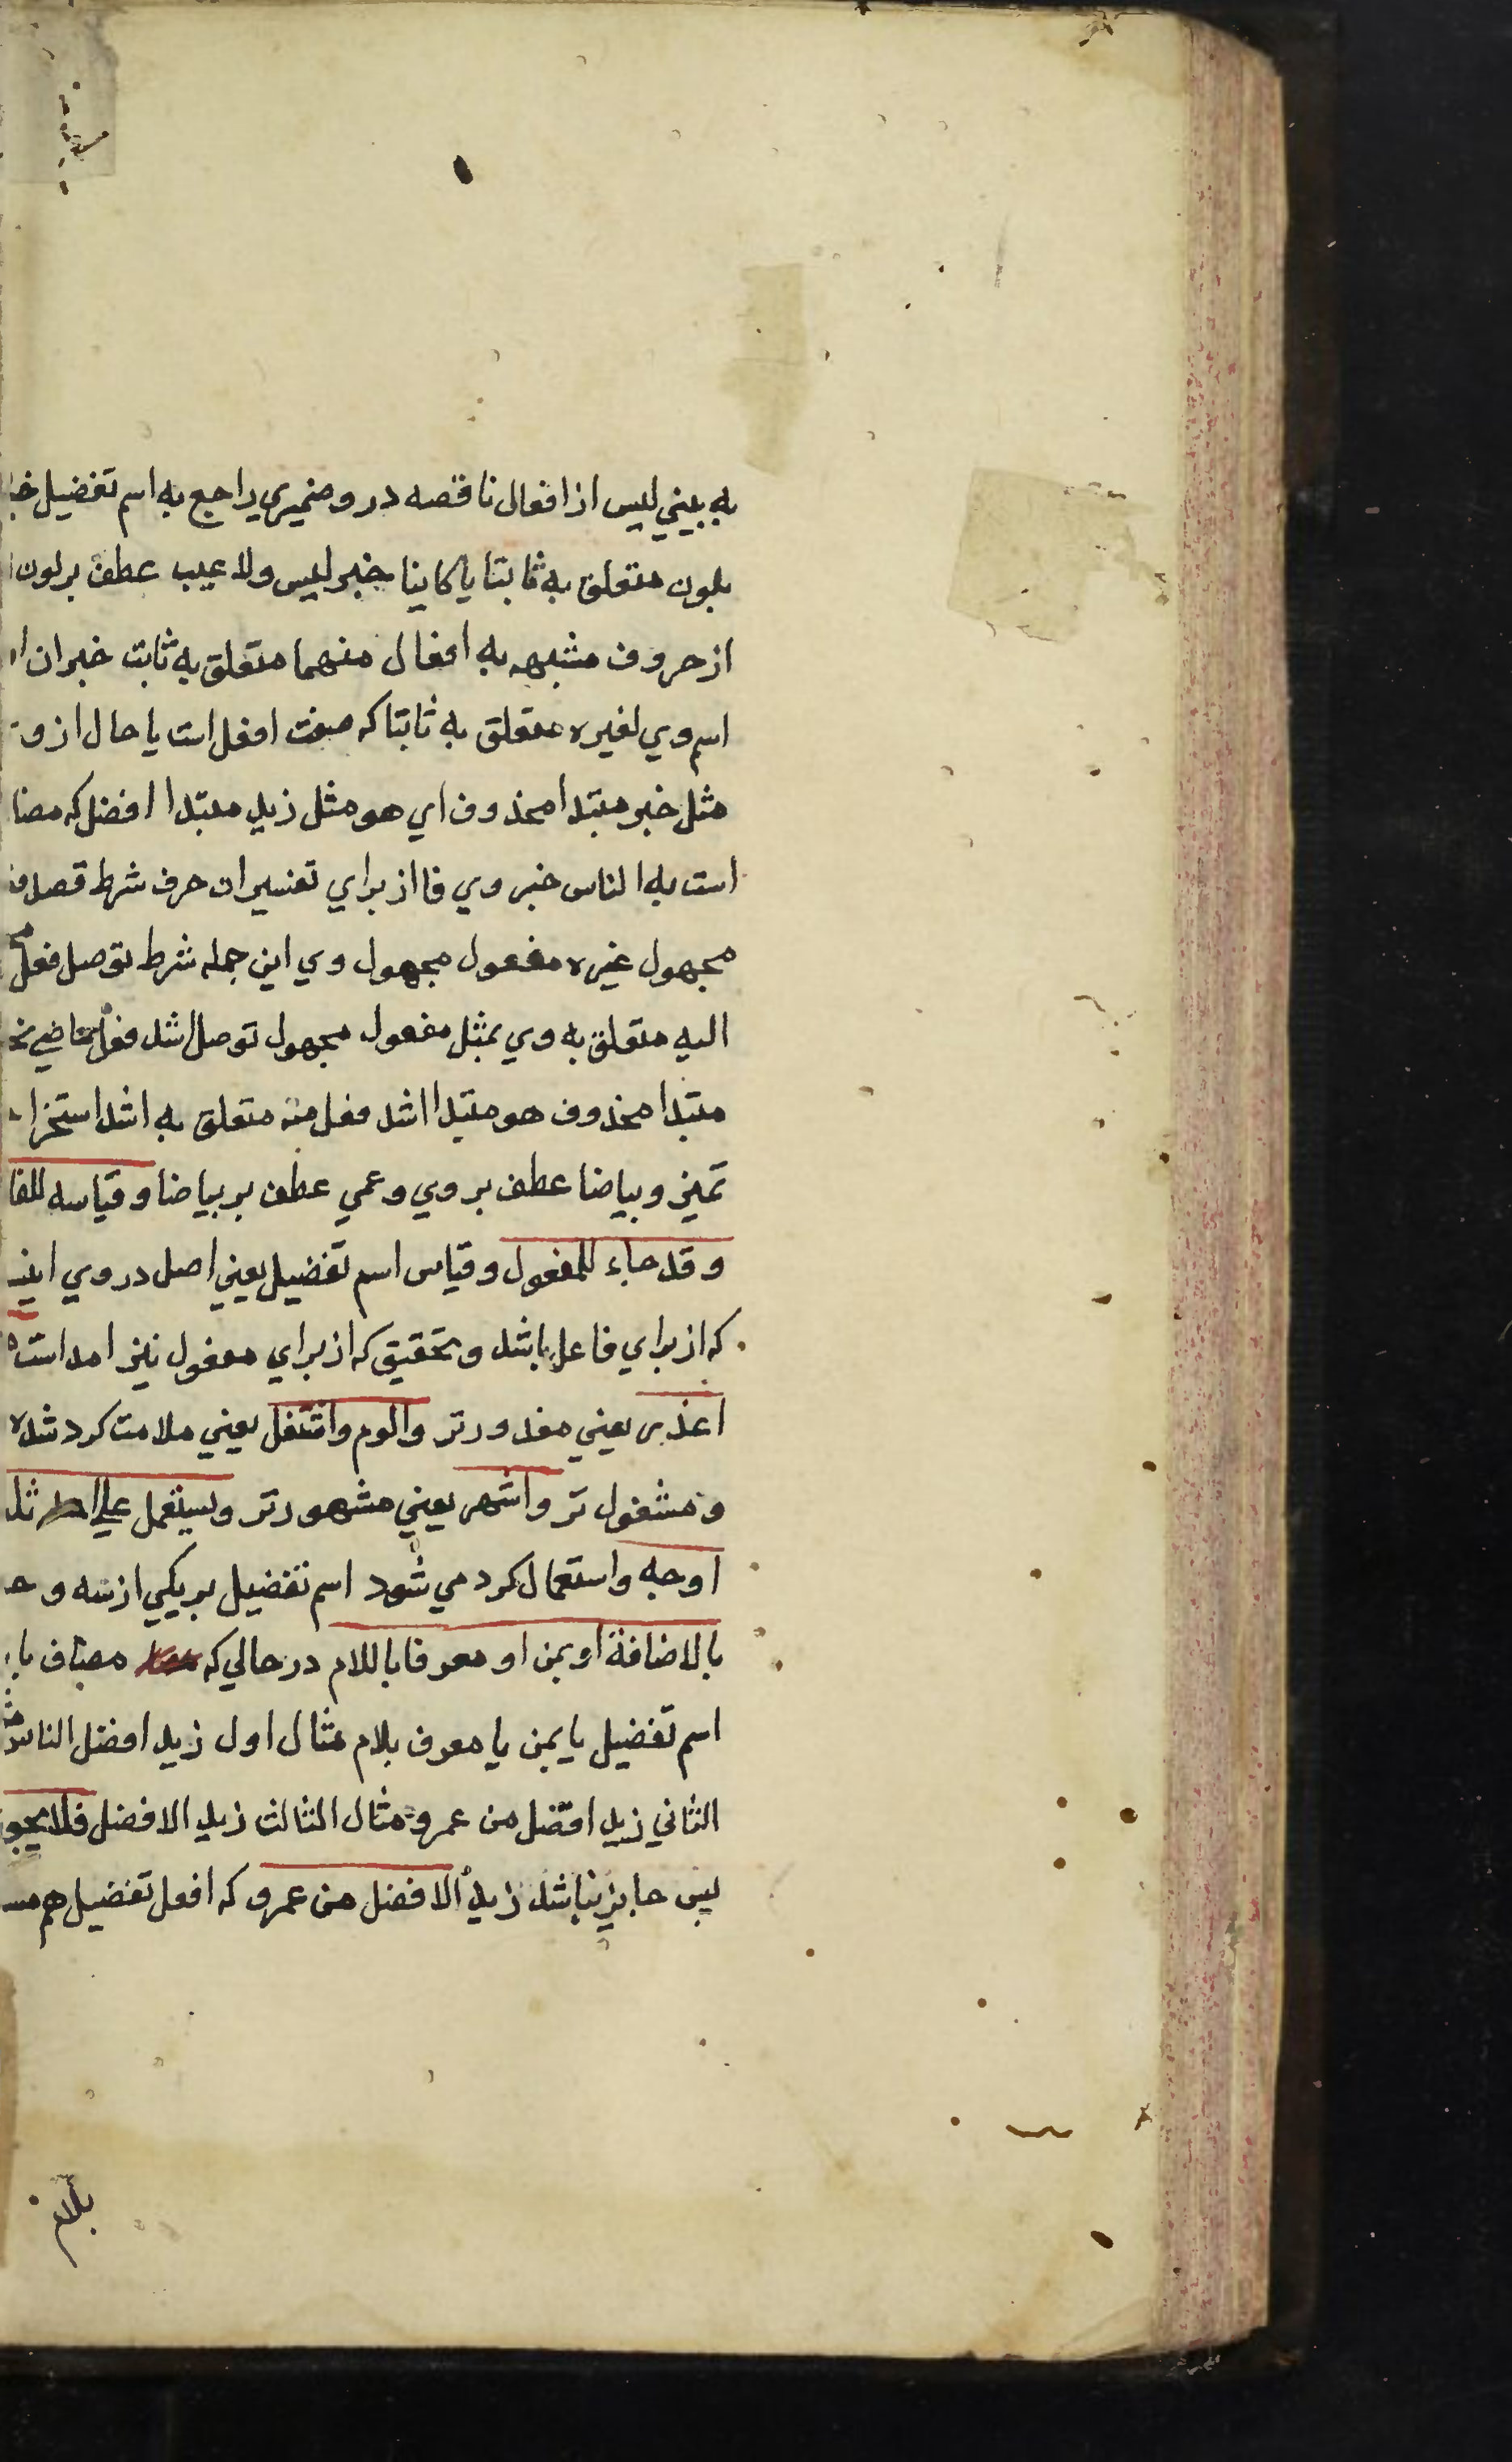 به بيني ليس از افعال ناقصه درو ضميري راجع به اسم تفضيل
بلون متعلق به ثابتا يا كاينا خبر ليس ولا عيب عطف بر لون
از حروف مشبهه به افعال منهما متعلق به ثابت خبر ان
اسم وي لغيره متعلق به ثابتا كه صفت افعل است يا حال از و
مثل خبر مبتدا محذوف اي هو مثل زيد مبتدا افضل كه مضا
است به الناس خبر وي فا از براي تفسير ان حرف شرط قصد
مجهول غيره مفعول مجهول وي اين جمله شرط توصل فعل
اليه متعلق به وي بمثل مفعول مجهول توصل اشد فعل ماضي
مبتدا محذوف هو مبتدا اشد فعل منه متعلق به اشد استخرا
تميز وبياضا عطف بر وي وعمي عطف بر بياضا وقياسه للفا
وقد جاء للمفعول وقياس اسم تفضيل يعني اصل در وي اين
كه از براي فاعل باشد وتحقيق كه از براي مفعول نيز امد است
اعذر يعني معذورتر والوم واشغل يعني ملامت كرد شده
ومشغول تر واشهر يعني مشهورتر ويستعمل علي ثلا
اوجه واستعمال كرد مي شود اسم تفضيل بر يكي از سه وجـ
بالاضافة او بمن او معرفا باللام در حالي كه مضاف با
اسم تفضيل يا بمن يا معرف بلام مثال اول زيد افضل الناس
الثاني زيد افضل من عمرو مثال الثالث زيد الافضل فلا يجو
پس جايز نباشد زيد الافضل من عمرو كه افعل تفضيل هم